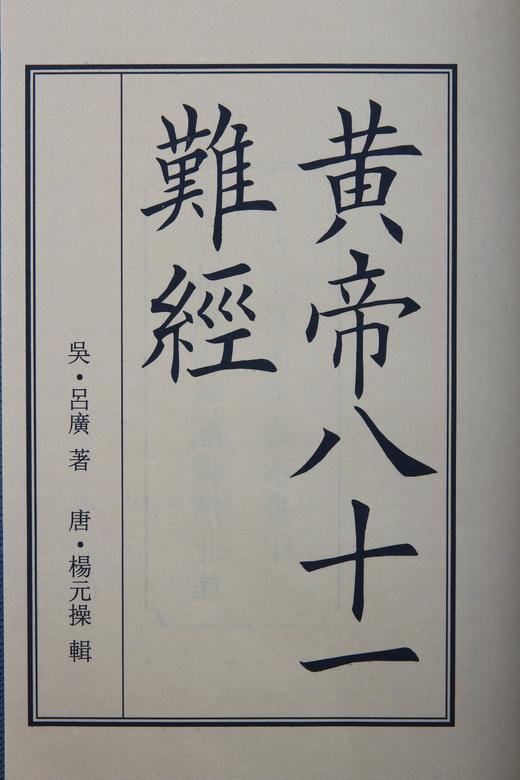 黃帝八十一
難經
吳・呂廣 著 唐・楊元操 輯